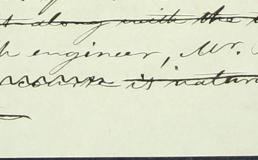 t along with the
h engineer, Mr.
course is natura